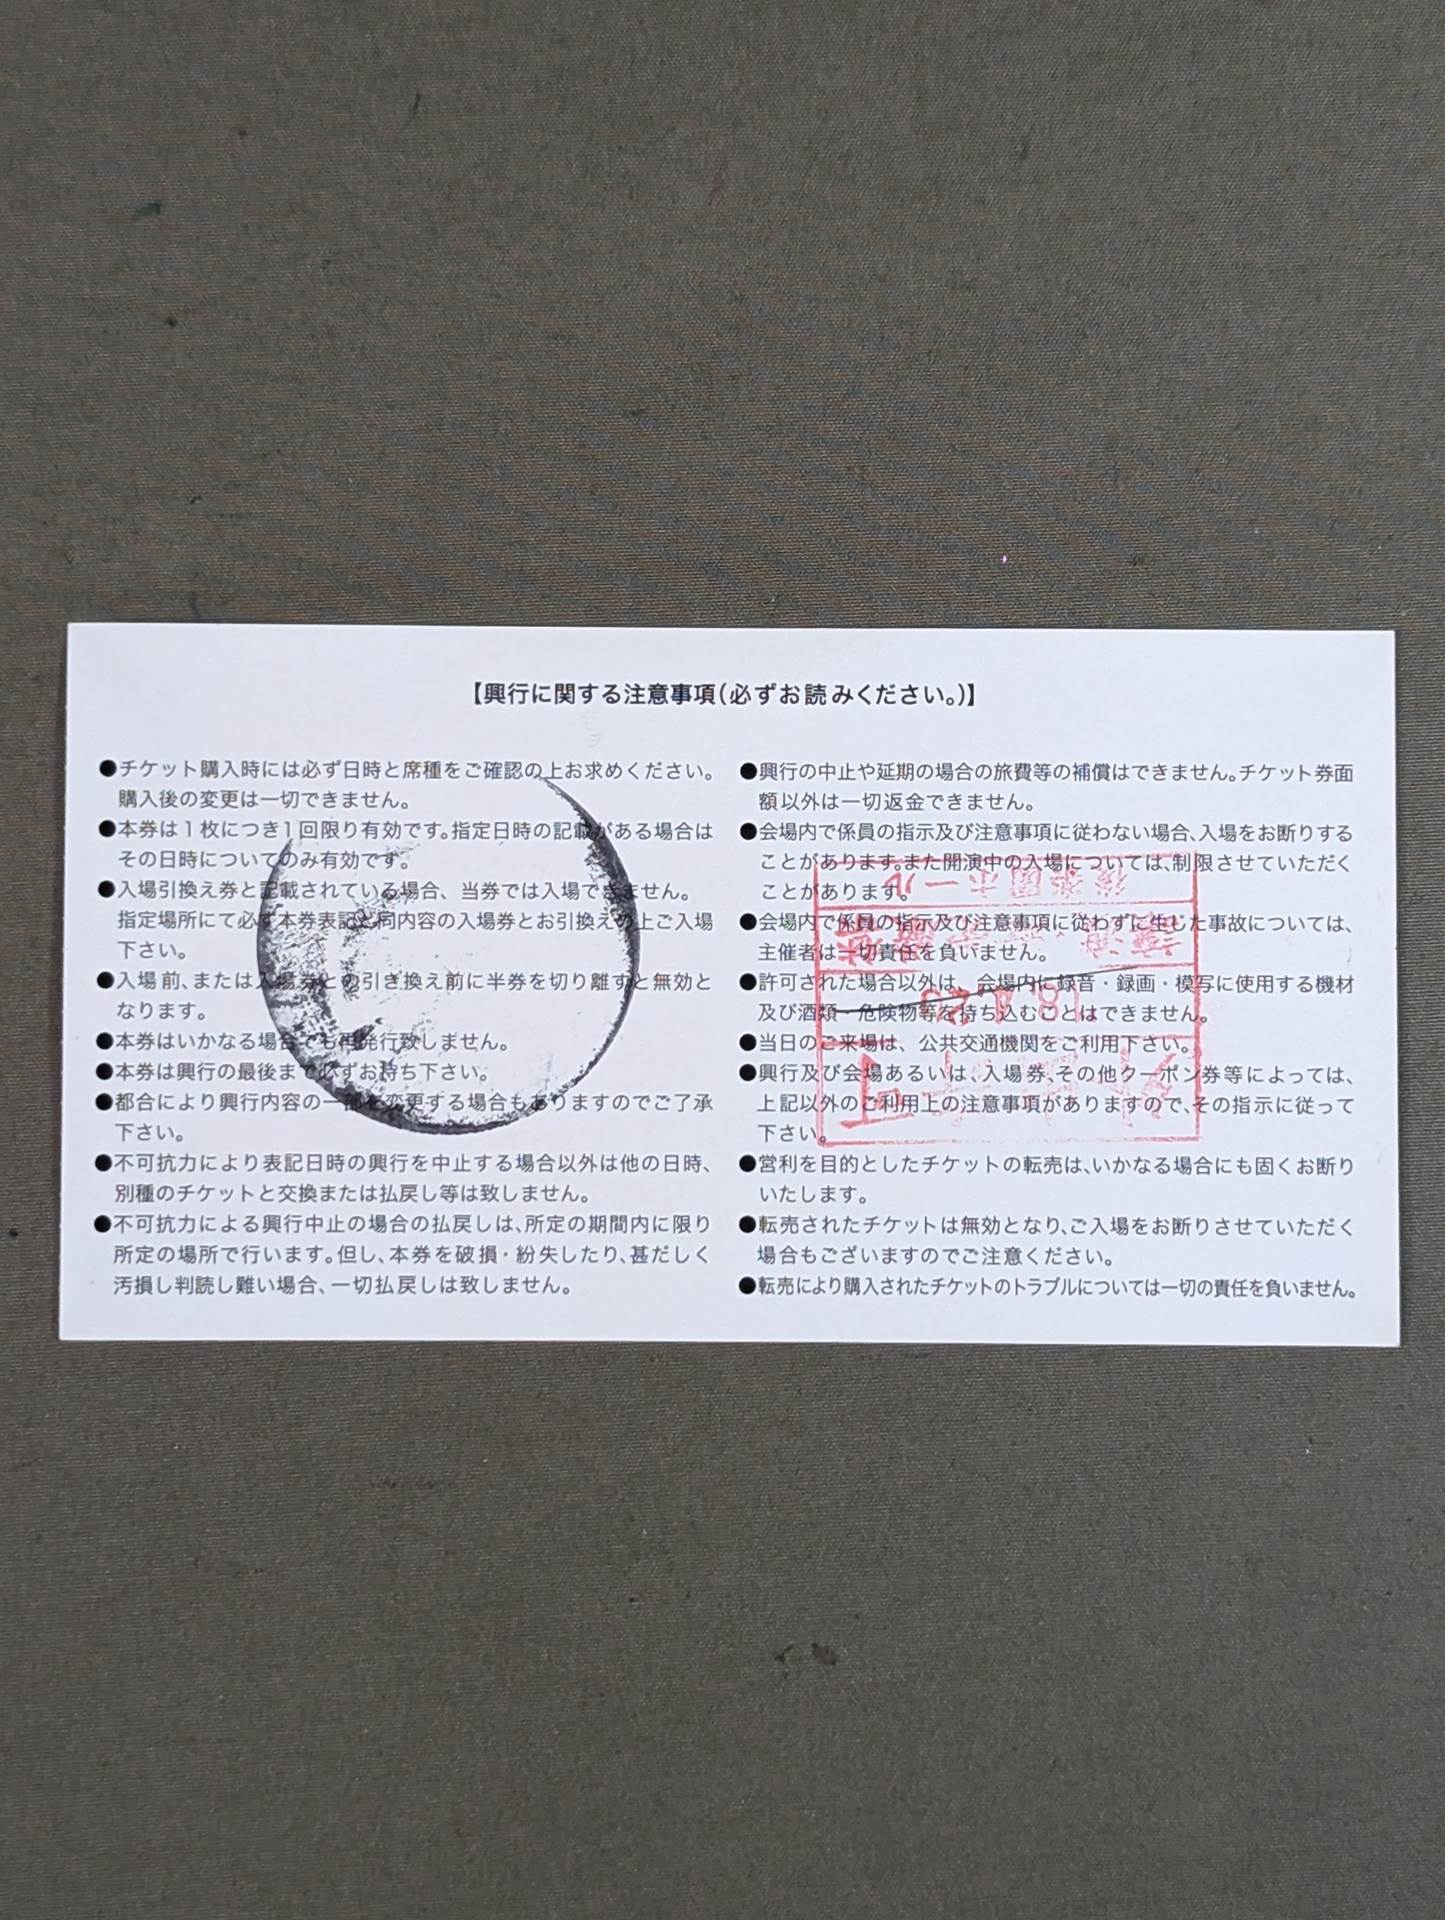 【興行に関する注意事項(必ずお読みください。)】
●チケット購入時には必ず日時と席種をご確認の上お求めください。
購入後の変更は一切できません。
●本券は1枚につき1回限り有効です。指定日時の記載がある場合は
その日時についてのみ有効です。
●入場引換え券と記載されている場合、当券では入場できません。
指定場所にて必ず本券表記と同内容の入場券とお引換えの上ご入場
下さい。
●入場前、または入場券との引き換え前に半券を切り離すと無効と
なります。
●本券はいかなる場合でも再発行致しません。
●本券は興行の最後まで必ずお持ち下さい。
●都合により興行内容の一部を変更する場合もありますのでご了承
下さい。
●不可抗力により表記日時の興行を中止する場合以外は他の日時、
別種のチケットと交換または払戻し等は致しません。
●不可抗力による興行中止の場合の払戻しは、所定の期間内に限り
所定の場所で行います。但し、本券を破損・紛失したり、甚だしく
汚損し判読し難い場合、一切払戻しは致しません。
●興行の中止や延期の場合の旅費等の補償はできません。チケット券面
額以外は一切返金できません。
●会場内で係員の指示及び注意事項に従わない場合、入場をお断りする
ことがあります。また開演中の入場については、制限させていただく
ことがあります。
●会場内で係員の指示及び注意事項に従わずに生じた事故については、
主催者は一切責任を負いません。
●許可された場合以外は、会場内に録音・録画・模写に使用する機材
及び酒類・危険物等を持ち込むことはできません。
●当日のご来場は、公共交通機関をご利用下さい。
●興行及び会場あるいは、入場券、その他クーポン券等によっては、
上記以外のご利用上の注意事項がありますので、その指示に従って
下さい。
●営利を目的としたチケットの転売は、いかなる場合にも固くお断り
いたします。
●転売されたチケットは無効となり、ご入場をお断りさせていただく
場合もございますのでご注意ください。
●転売により購入されたチケットのトラブルについては一切の責任を負いません。
後楽園ホール